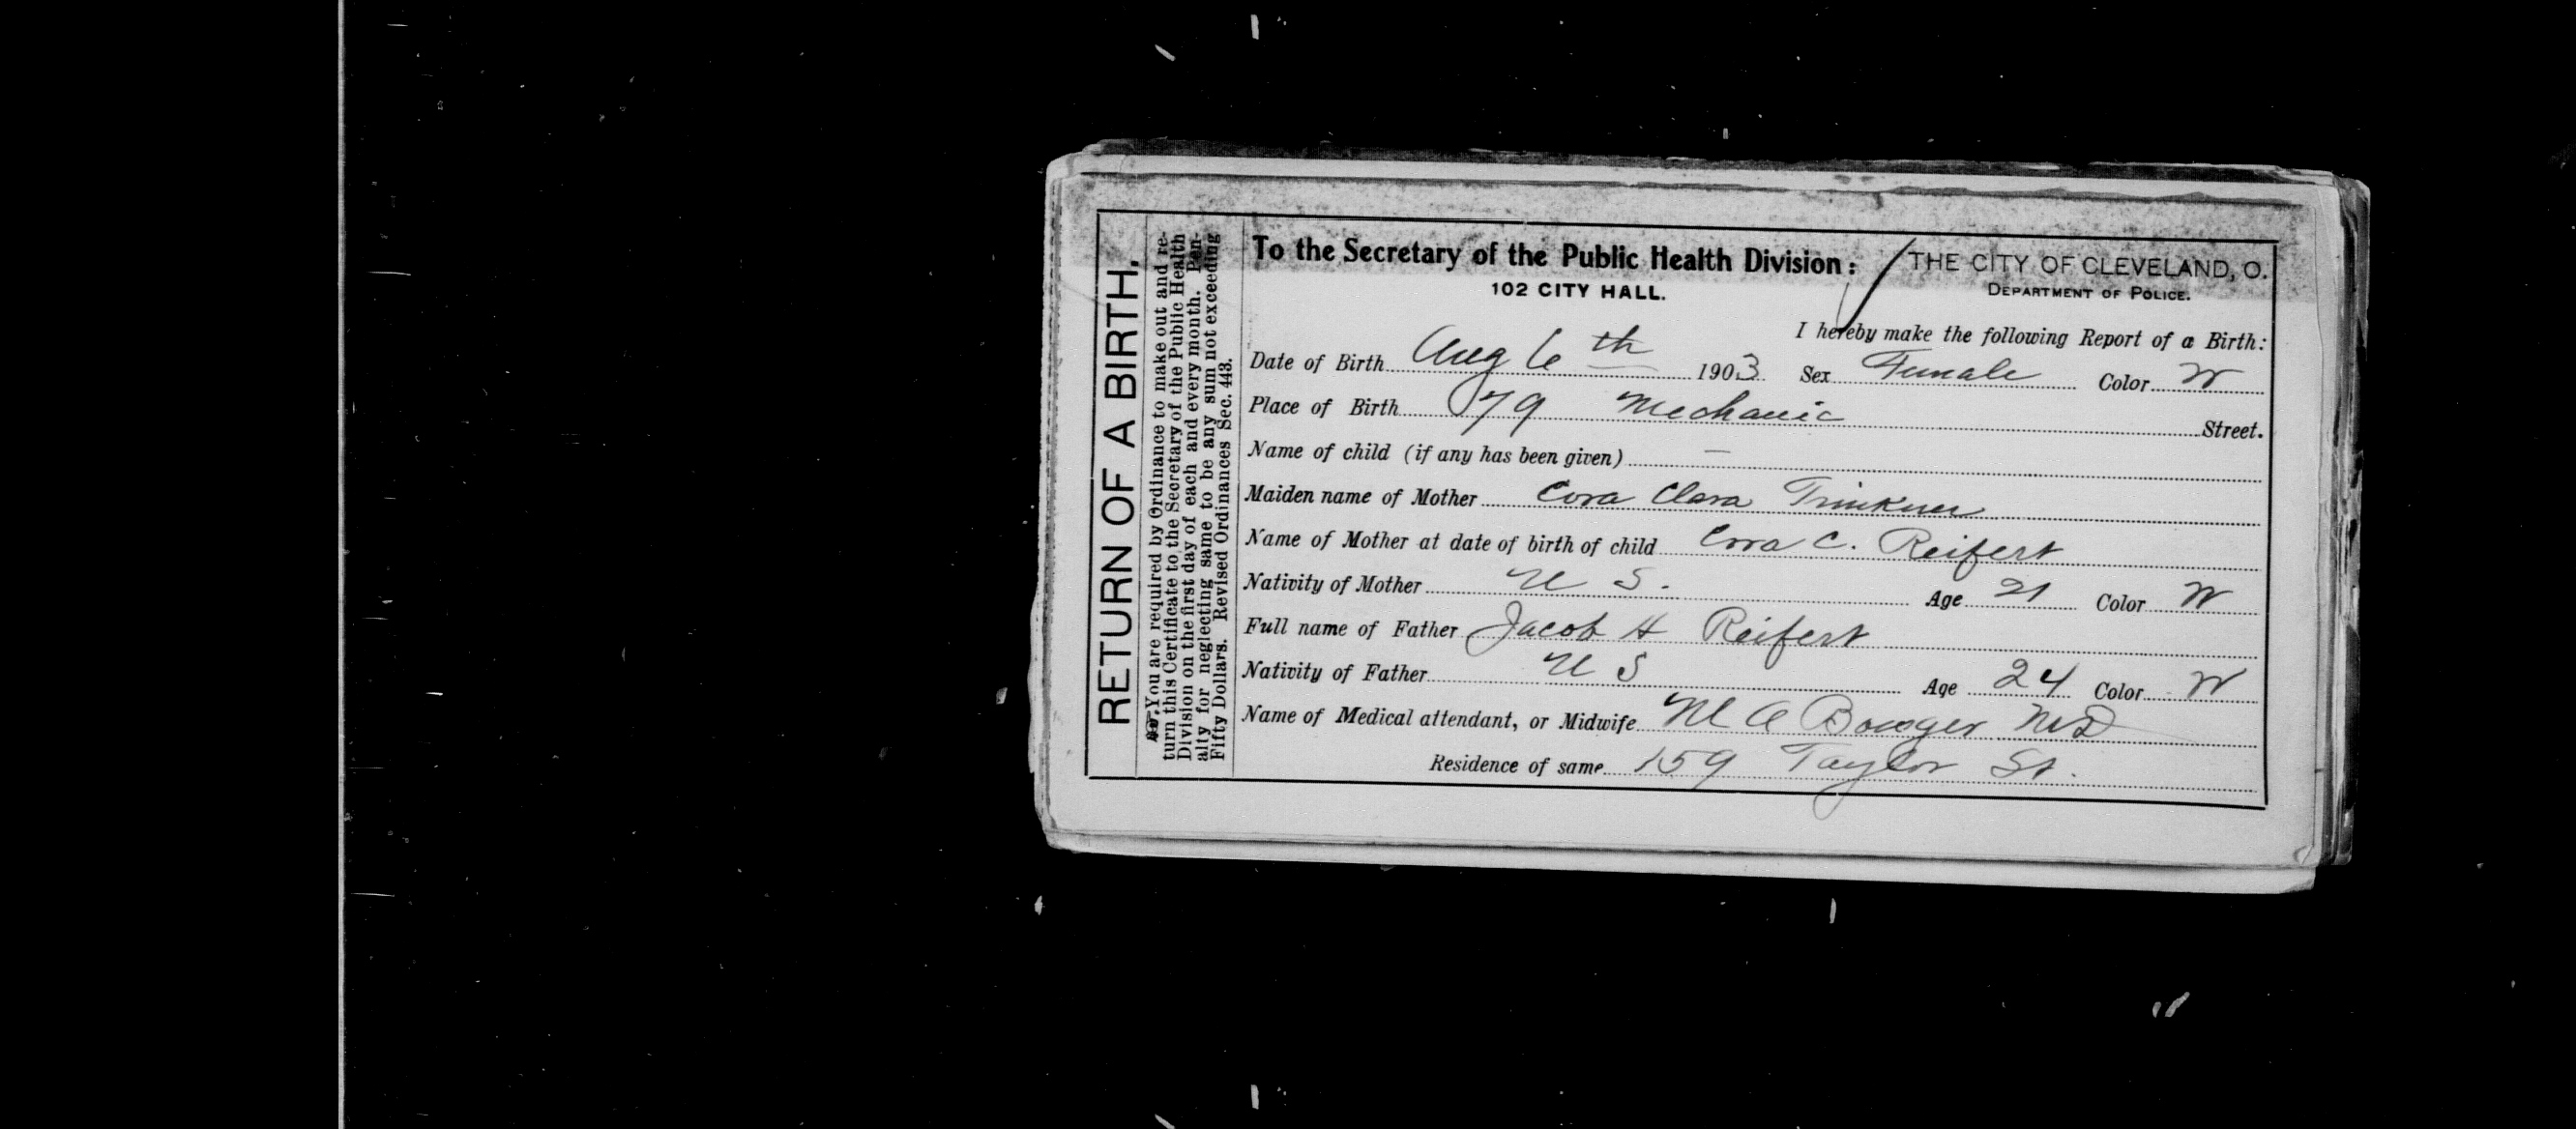 RETURN OF A BIRTH.
You are required by Ordinance to make out and re-
turn this Certificate to the Secretary of the Public Health
Division on the first day of each and every month. Pen-
alty for neglecting same to be any sum not exceeding
Fifty Dollars. Revised Ordinances Sec. 443.
To the Secretary of the Public Health Division:
102 CITY HALL.
THE CITY OF CLEVELAND, O.
DEPARTMENT OF POLICE.
I hereby make the following Report of a Birth:
Date of Birth Aug 6th 1903 Sex Female Color W
Place of Birth 79 Mechanic Street.
Name of child (if any has been given) —
Maiden name of Mother Cora Clara Trinkner
Name of Mother at date of birth of child Cora C. Reifert
Nativity of Mother U S. Age 21 Color W
Full name of Father Jacob H Reifert
Nativity of Father U S Age 24 Color W
Name of Medical attendant, or Midwife M A MD
Residence of same 159 Taylor St.